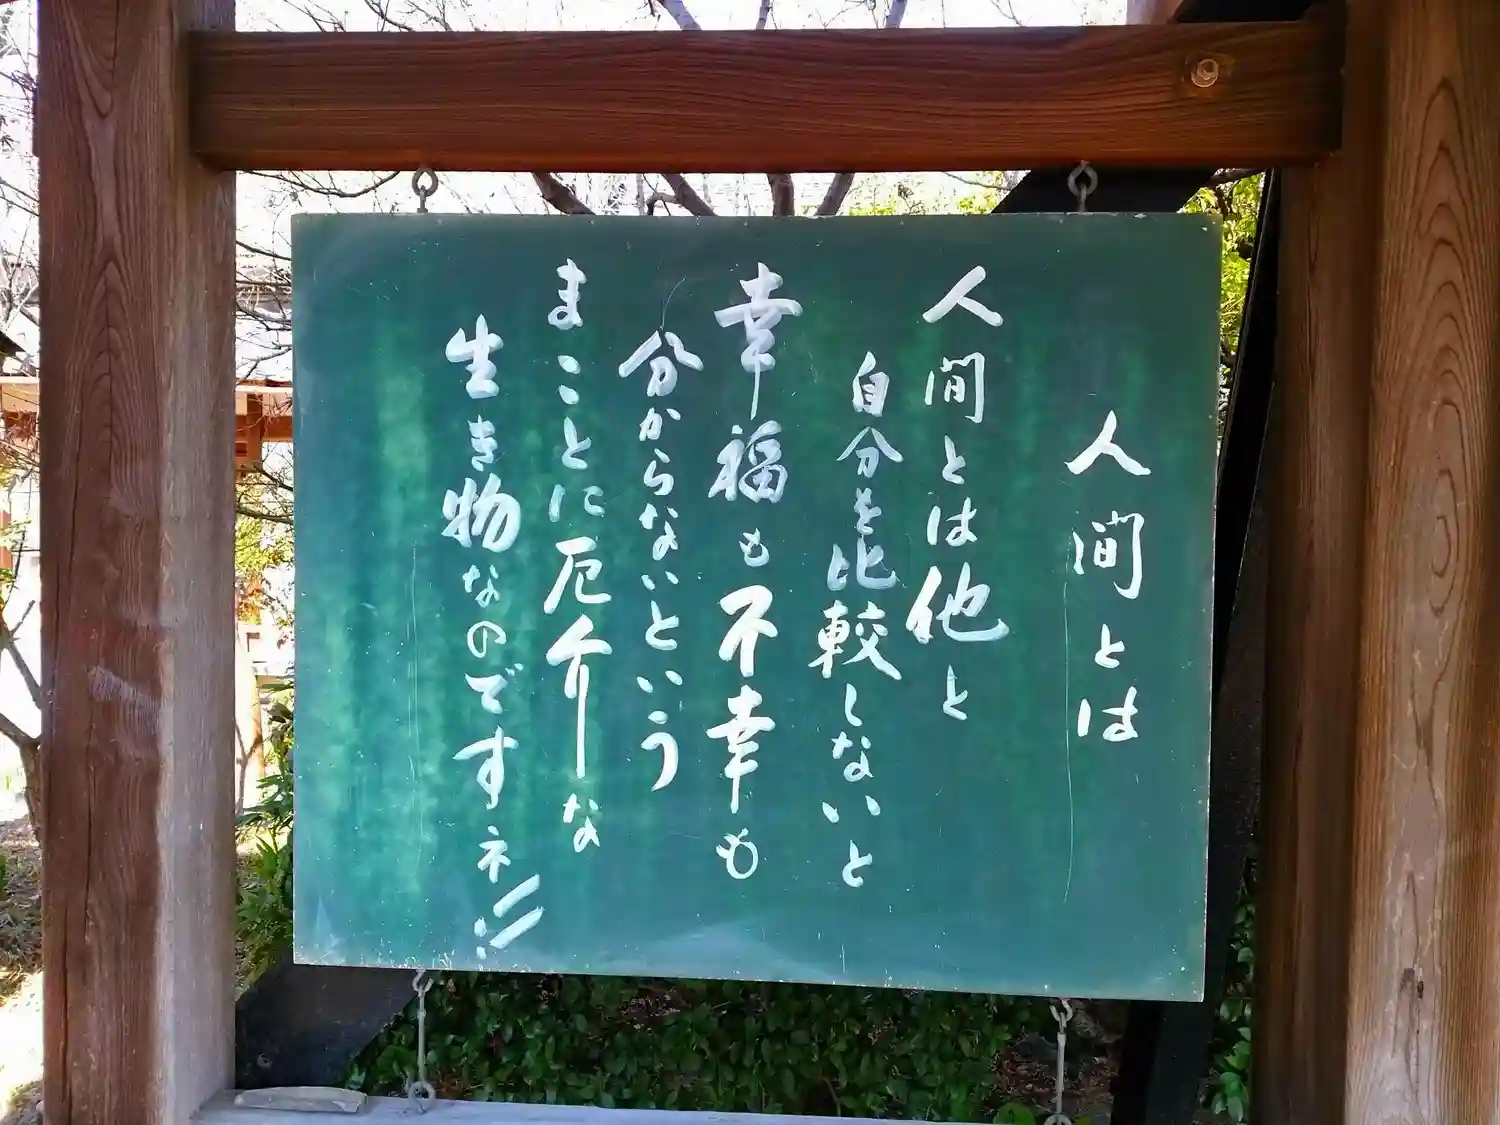 人間とは
人間とは他と
自分を比較しないと
幸福も不幸も
分からないという
まことに厄介な
生き物なのですネ!!